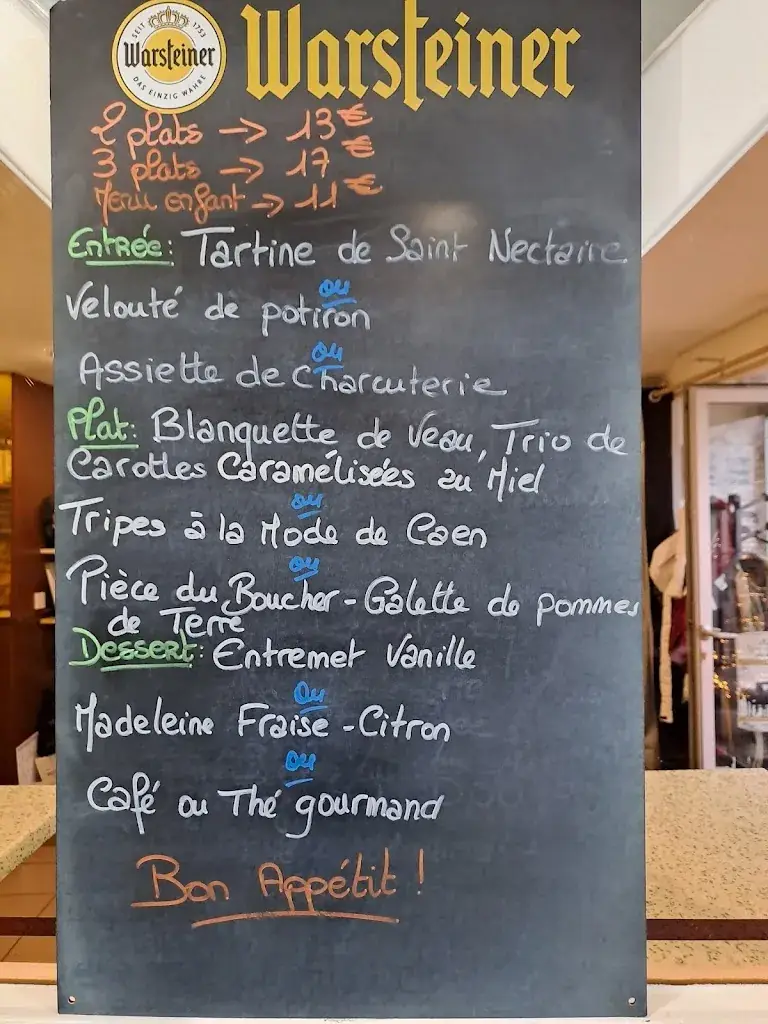 SEIT 1753
Warsteiner
DAS EINZIG WAHRE
Warsteiner
2 plats → 13€
3 plats → 17€
Menu enfant → 11€
Entrée: Tartine de Saint Nectaire
ou
Velouté de potiron
ou
Assiette de Charcuterie
Plat: Blanquette de Veau, Trio de
Carottes Caramélisées au Miel
ou
Tripes à la Mode de Caen
ou
Pièce du Boucher - Galette de pommes
de Terre
Dessert: Entremet Vanille
Ou
Madeleine Fraise - Citron
ou
Café ou Thé gourmand
Bon Appétit !